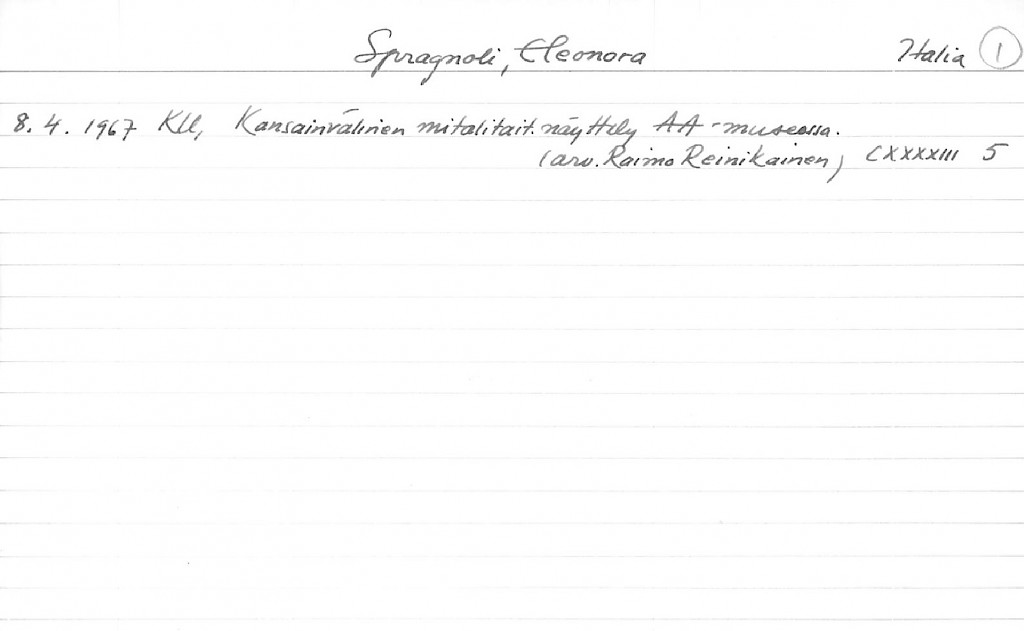 Spragnoli, Eleonora Italia 1
8.4.1967 KU, Kansainvälinen mitalitait. näyttely AA-museossa.
(arv. Raimo Reinikainen) CXXXXIII 5